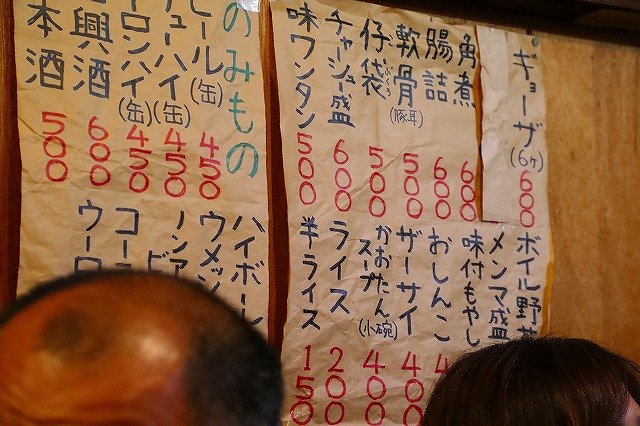 ギョーザ(6ヶ) 600
角煮 600
腸詰 600
軟骨(豚耳) 500
仔袋 ぶくろ 500
チャシュー盛 600
味ワンタン 500
ボイル野菜
メンマ盛
味付もやし
おしんこ 4
ザーサイ 400
かおたんスープ(小碗) 400
ライス 200
半ライス 150
のみもの
ビール(缶) 450
チューハイ(缶) 450
ウーロンハイ(缶) 450
紹興酒 600
日本酒 500
ハイボー
ウメッシ
ノンア
ビ
コー
ウーロ